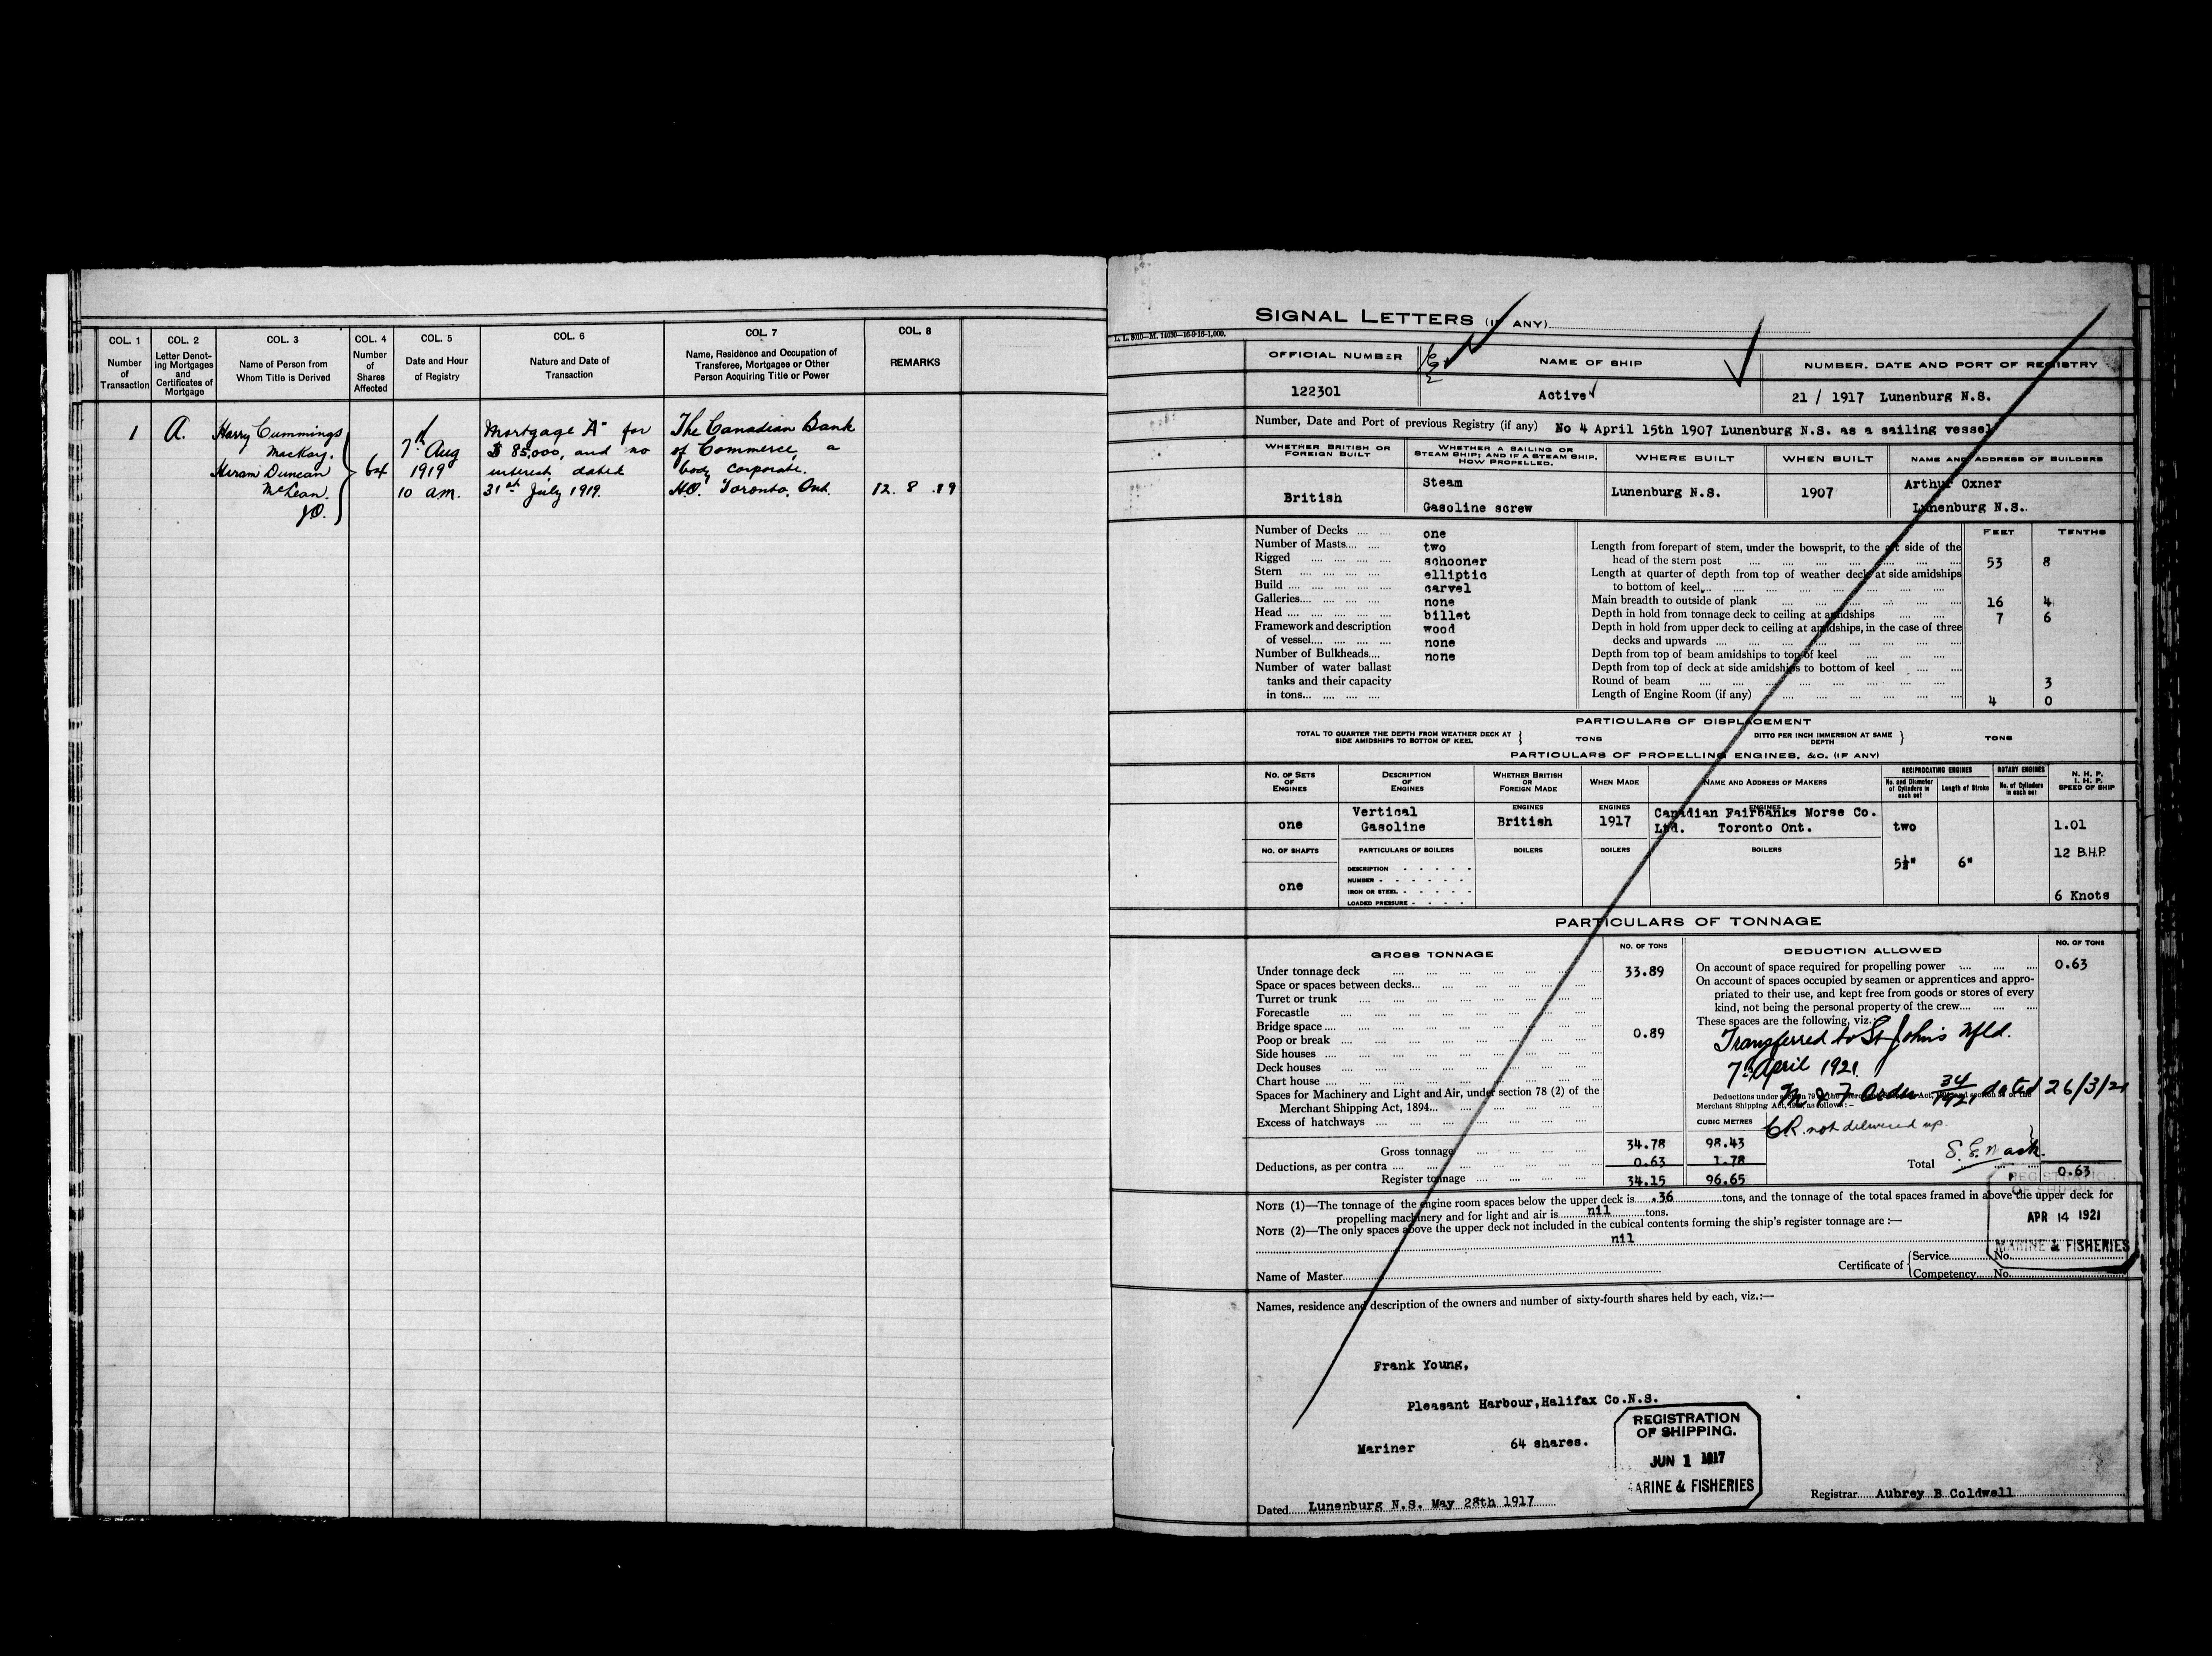 COL. 1 COL. 2 COL. 3 COL. 4 COL. 5 COL. 6 COL. 7 COL. 8
Number of Transaction
Letter Denoting Mortgages and Certificates of Mortgage
Name of Person from Whom Title is Derived
Number of Shares Affected
Date and Hour of Registry
Nature and Date of Transaction
Name, Residence and Occupation of Transferee, Mortgagee or Other Person Acquiring Title or Power
REMARKS
1 A. Harry Cummings MacKay. Hiram Duncan McLean. JO. 64
7th Aug 1919 10 am.
Mortgage "A" for $85,000, and no interest dated 31st July 1919.
The Canadian Bank of Commerce, a body corporate. H.O. Toronto, Ont.
12. 8 .19
SIGNAL LETTERS (IF ANY)
L. L. 8010—M. 14030—16-9-16-1,000.
OFFICIAL NUMBER NAME OF SHIP NUMBER, DATE AND PORT OF REGISTRY
122301 Active 21 / 1917 Lunenburg N.S.
Number, Date and Port of previous Registry (if any) No 4 April 15th 1907 Lunenburg N.S. as a sailing vessel
WHETHER BRITISH OR FOREIGN BUILT
WHETHER A SAILING OR STEAM SHIP; AND IF A STEAM SHIP, HOW PROPELLED.
WHERE BUILT WHEN BUILT NAME AND ADDRESS OF BUILDERS
British
Steam
Gasoline screw
Lunenburg N.S. 1907
Arthur Oxner
Lunenburg N.S.
FEET TENTHS
Number of Decks one
Number of Masts two
Rigged schooner
Stern elliptic
Build carvel
Galleries none
Head billet
Framework and description of vessel wood
none
Number of Bulkheads none
Number of water ballast tanks and their capacity in tons
Length from forepart of stem, under the bowsprit, to the aft side of the head of the stern post 53 8
Length at quarter of depth from top of weather deck at side amidships to bottom of keel
Main breadth to outside of plank 16 4
Depth in hold from tonnage deck to ceiling at amidships 7 6
Depth in hold from upper deck to ceiling at amidships, in the case of three decks and upwards
Depth from top of beam amidships to top of keel
Depth from top of deck at side amidships to bottom of keel
Round of beam 3
Length of Engine Room (if any) 4 0
PARTICULARS OF DISPLACEMENT
TOTAL TO QUARTER THE DEPTH FROM WEATHER DECK AT SIDE AMIDSHIPS TO BOTTOM OF KEEL } TONS
DITTO PER INCH IMMERSION AT SAME DEPTH } TONS
PARTICULARS OF PROPELLING ENGINES, &C. (IF ANY)
NO. OF SETS OF ENGINES
DESCRIPTION OF ENGINES
WHETHER BRITISH OR FOREIGN MADE
WHEN MADE
NAME AND ADDRESS OF MAKERS
RECIPROCATING ENGINES
No. and Diameter of Cylinders in each set
Length of Stroke
ROTARY ENGINES
No. of Cylinders in each set
N. H. P. I. H. P. SPEED OF SHIP
ENGINES ENGINES ENGINES
one
Vertical Gasoline
British 1917
Canadian Fairbanks Morse Co. Ltd. Toronto Ont.
two
1.01
NO. OF SHAFTS PARTICULARS OF BOILERS BOILERS BOILERS BOILERS
5½" 6" 12 B.H.P.
one
DESCRIPTION
NUMBER
IRON OR STEEL
LOADED PRESSURE
6 Knots
PARTICULARS OF TONNAGE
GROSS TONNAGE NO. OF TONS
Under tonnage deck 33.89
Space or spaces between decks
Turret or trunk
Forecastle
Bridge space
Poop or break 0.89
Side houses
Deck houses
Chart house
Spaces for Machinery and Light and Air, under section 78 (2) of the Merchant Shipping Act, 1894
Excess of hatchways
CUBIC METRES
Gross tonnage 34.78 98.43
Deductions, as per contra 0.63 1.78
Register tonnage 34.15 96.65
DEDUCTION ALLOWED NO. OF TONS
On account of space required for propelling power 0.63
On account of spaces occupied by seamen or apprentices and appropriated to their use, and kept free from goods or stores of every kind, not being the personal property of the crew
These spaces are the following, viz.
Transferred to St John's Nfld.
7th April 1921.
M & F Order 34/1921 dated 26/3/21
CR. not delivered up.
Total 0.63
NOTE (1)—The tonnage of the engine room spaces below the upper deck is .36 tons, and the tonnage of the total spaces framed in above the upper deck for propelling machinery and for light and air is nil tons.
NOTE (2)—The only spaces above the upper deck not included in the cubical contents forming the ship's register tonnage are :—
nil
REGISTRATION OF SHIPPING
APR 14 1921
MARINE & FISHERIES
Name of Master
Certificate of { Service No.
Competency No.
Names, residence and description of the owners and number of sixty-fourth shares held by each, viz.:—
Frank Young,
Pleasant Harbour, Halifax Co.N.S.
Mariner 64 shares.
REGISTRATION OF SHIPPING.
JUN 1 1917
MARINE & FISHERIES
Dated Lunenburg N.S. May 28th 1917
Registrar Aubrey B Coldwell